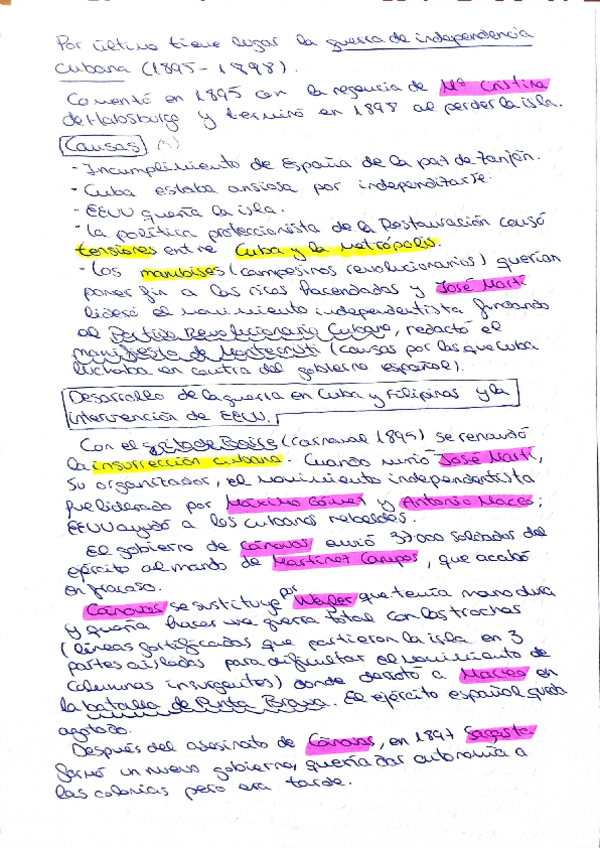 Por último tiene lugar la guerra de independencia
cubana (1895-1898).
Comentó en 1895 con la regencia de Mª Cristina
de Habsburgo y terminó en 1898 al perder la isla.
Causas
- Incumplimiento de España de la paz de Zanjón.
- Cuba estaba ansiosa por independizarse.
- EEUU quería la isla.
- La política proteccionista de la Restauración causó
tensiones entre Cuba y la metrópolis.
- Los mambises (campesinos revolucionarios) querían
poner fin a los ricos hacendados y José Martí
lideró el movimiento independentista fundando
el Partido Revolucionario Cubano, redactó el
manifiesto de Montecristi (causas por las que Cuba
luchaba en contra del gobierno español).
Desarrollo de la guerra en Cuba y Filipinas y la
intervención de EEUU.
Con el grito de Baire (carnaval 1895) se renaudó
la insurrección cubana. Cuando murió José Martí,
su organizador, el movimiento independentista
fue liderado por Máximo Gómez y Antonio Maceo;
EEUU ayudó a los cubanos rebeldes.
El gobierno de Cánovas envió 37000 soldados del
ejército al mando de Martínez Campos, que acabó
en fracaso.
Cánovas se sustituye por Weyler que tenía mano dura
y quería hacer una guerra total con las trochas
(líneas fortificadas que partieron la isla en 3
partes aisladas para dificultar el movimiento de
columnas insurgentes) donde derrotó a Maceo en
la batalla de Punta Brava. El ejército español queda
agotado.
Después del asesinato de Cánovas, en 1897 Sagasta
formó un nuevo gobierno, quería dar autonomía a
las colonias pero era tarde.